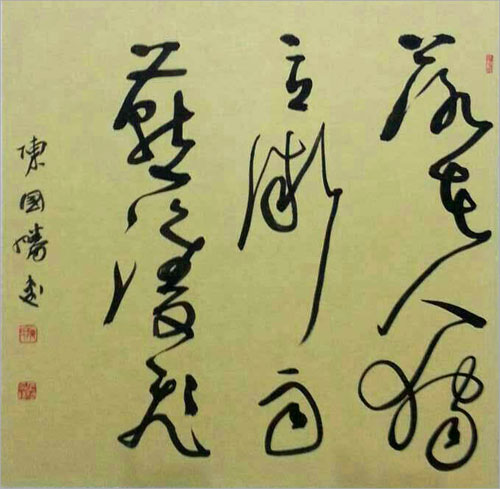 落花人獨
立微雨
燕雙飛
陳國勝書